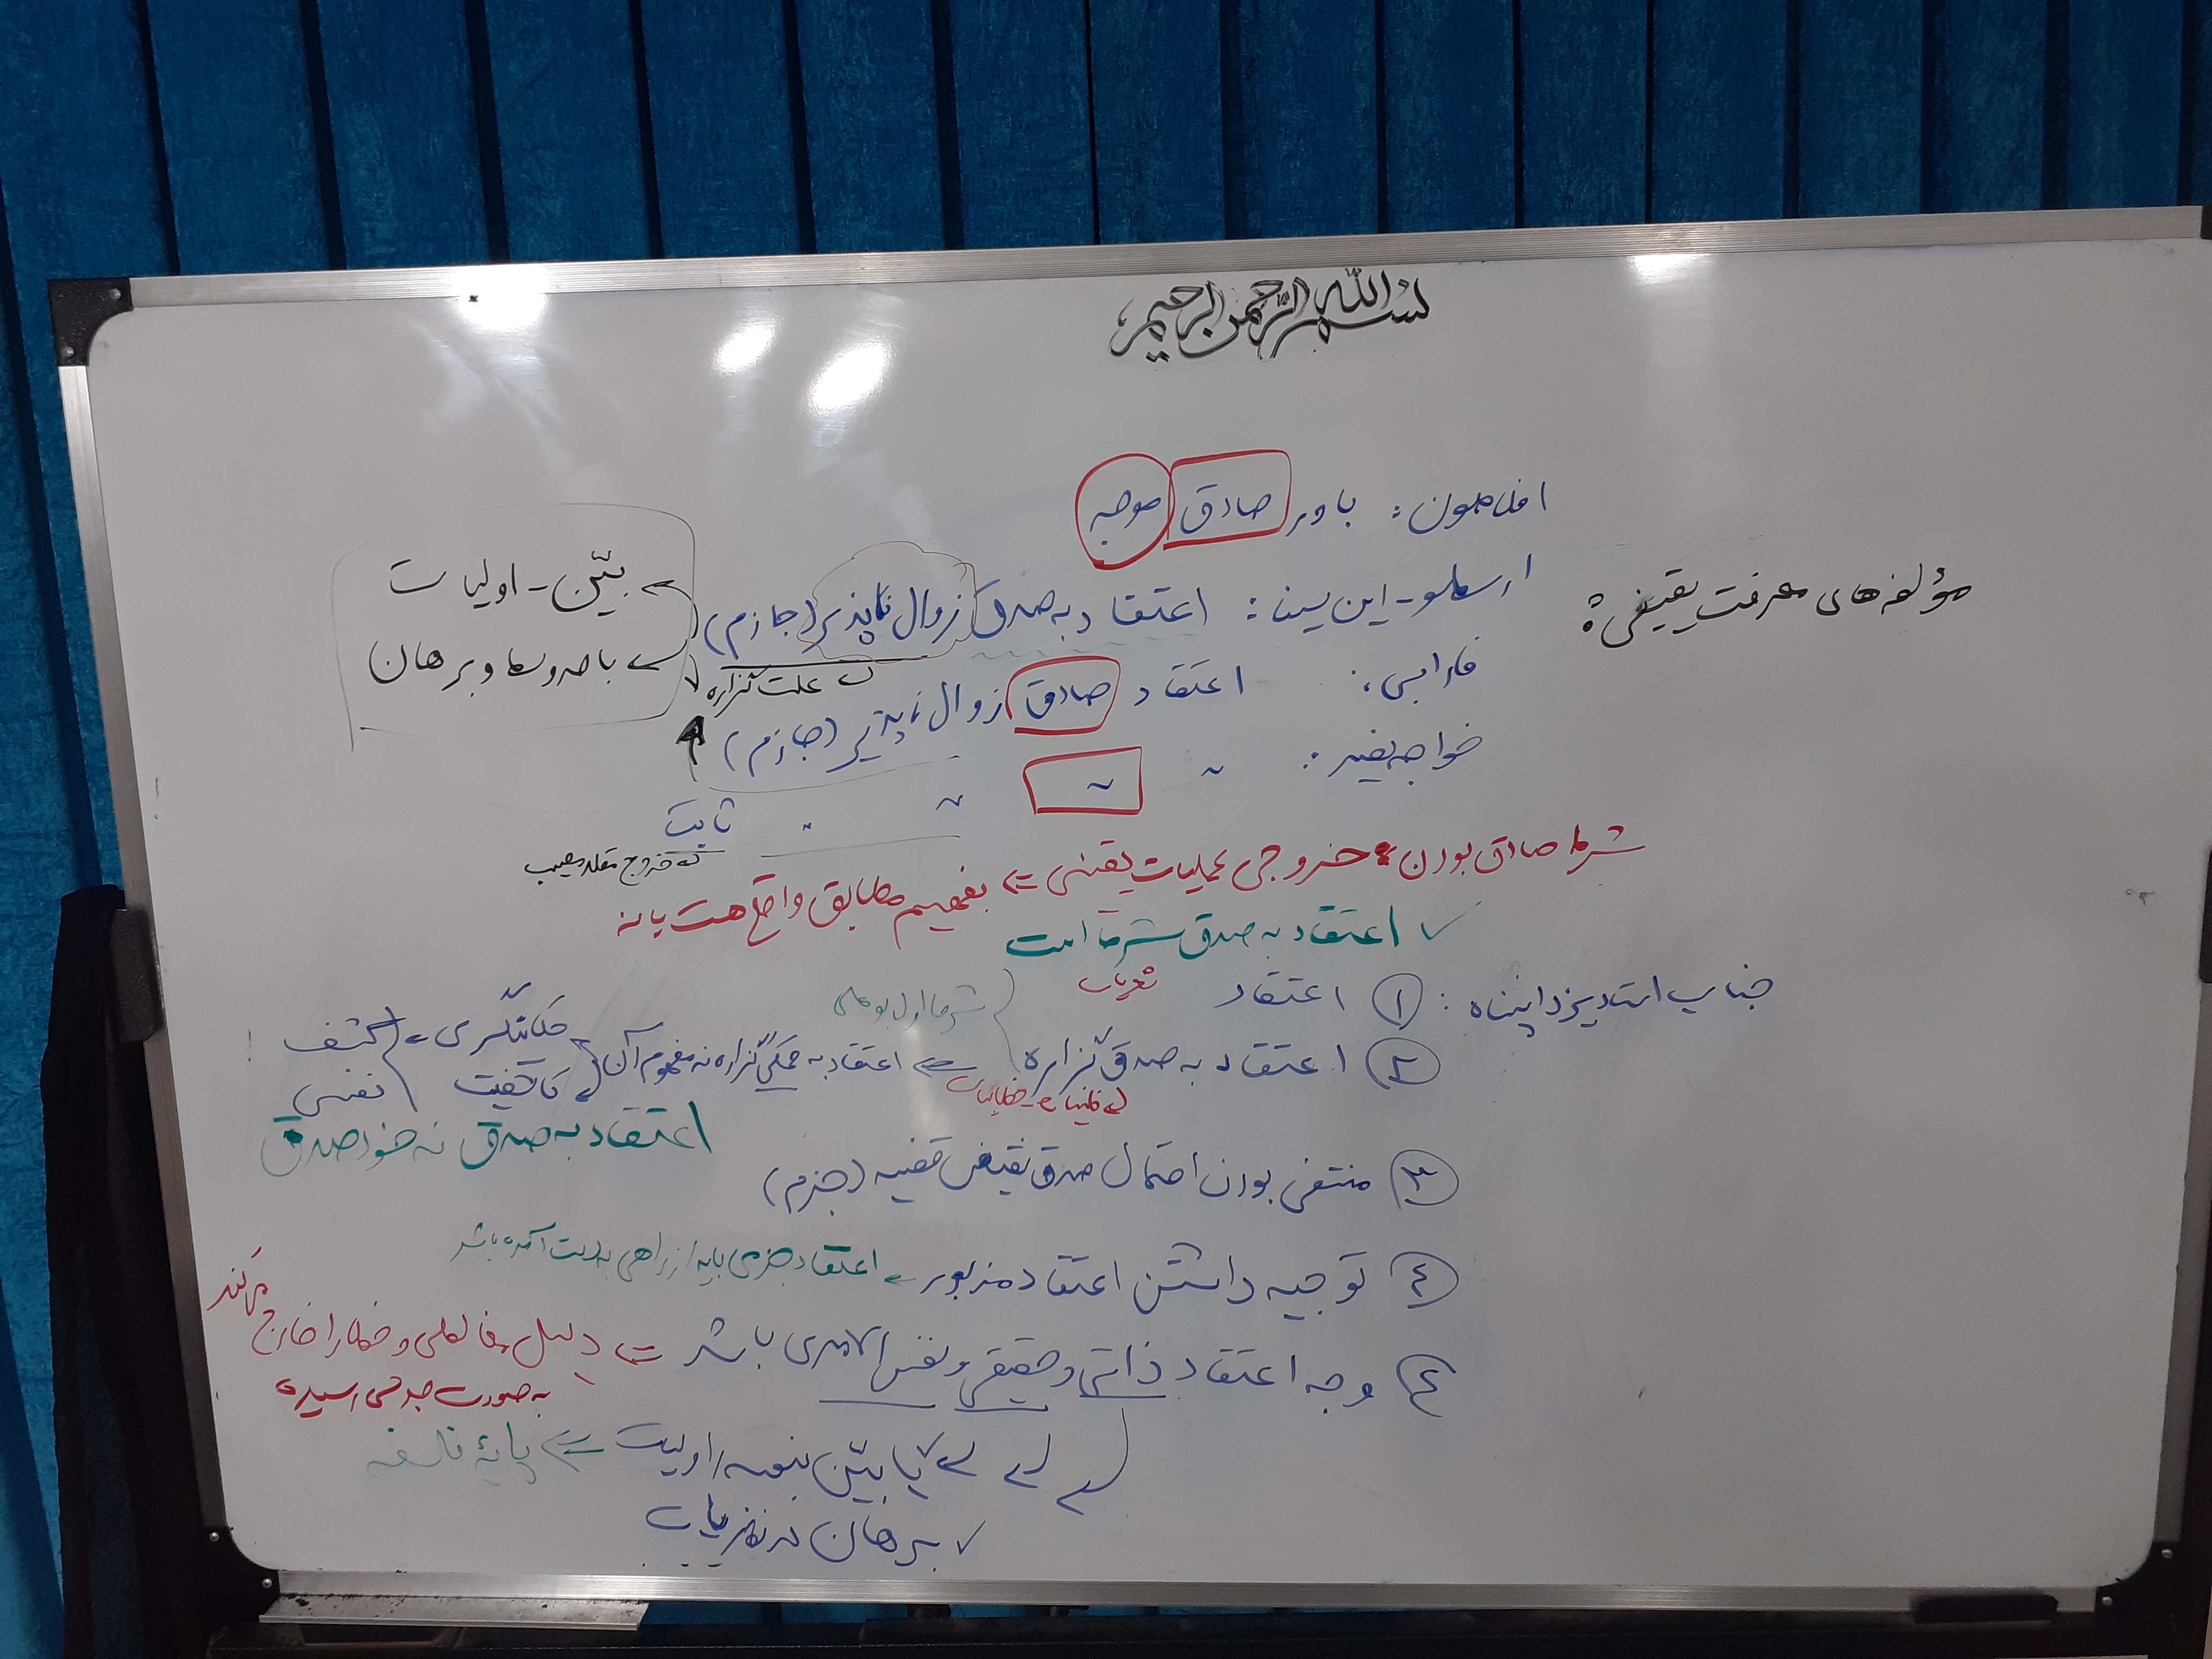 بسم الله الرحمن الرحیم
مؤلفه های معرفت یقینی:
افلاطون: باور صادق موجه
ارسطو - ابن سینا: اعتقاد به صدق زوال ناپذیر (جازم)
بیّن - اولیات
با حد وسط و برهان
علت گزاره
فارابی: اعتقاد صادق زوال ناپذیر (جازم)
خواجه نصیر: " " " " ثابت
خروج مقلد مصیب
شرط صادق بودن: خروجی عملیات یقینی ⇐ بفهمیم مطابق واقع هست یا نه
✓ اعتقاد به صدق شرط است
جناب استاد یزدانپناه: ① اعتقاد
شرط اول بوعلی
② اعتقاد به صدق گزاره ⇐ اعتقاد به محکی گزاره نه مفهوم آن
حکایتگری
کاشفیت
کشف
نفسی
اعتقاد به صدق نه خود صدق
③ منتفی بودن احتمال صدق نقیض قضیه (جزم)
④ توجیه داشتن اعتقاد مزبور ← اعتقاد جزمی باید از راهی به دست آمده باشد
④ وجه اعتقاد ذاتی و حقیقی و نفس الامری باشد ⇐ دلیل مغالطی و خطا را خارج میکند
به صورت جدلی
یا بیّن بنفسه / اولیت ⇐ پایهٔ فلسفه
✓ برهان در نظریات